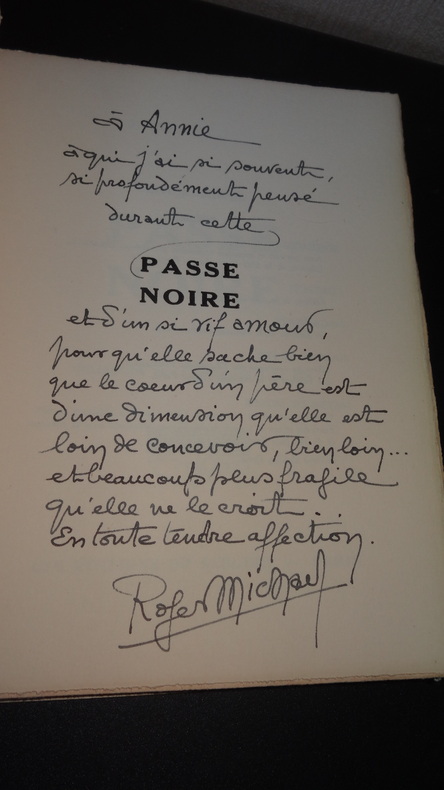 à Annie
à qui j'ai si souvent,
si profondément pensé
durant cette
PASSE
NOIRE
et d'un si vif amour,
pour qu'elle sache bien
que le coeur d'un père est
d'une dimension qu'elle est
loin de concevoir, bien loin...
et beaucoup plus fragile
qu'elle ne le croit...
En toute tendre affection.
Roger Michael